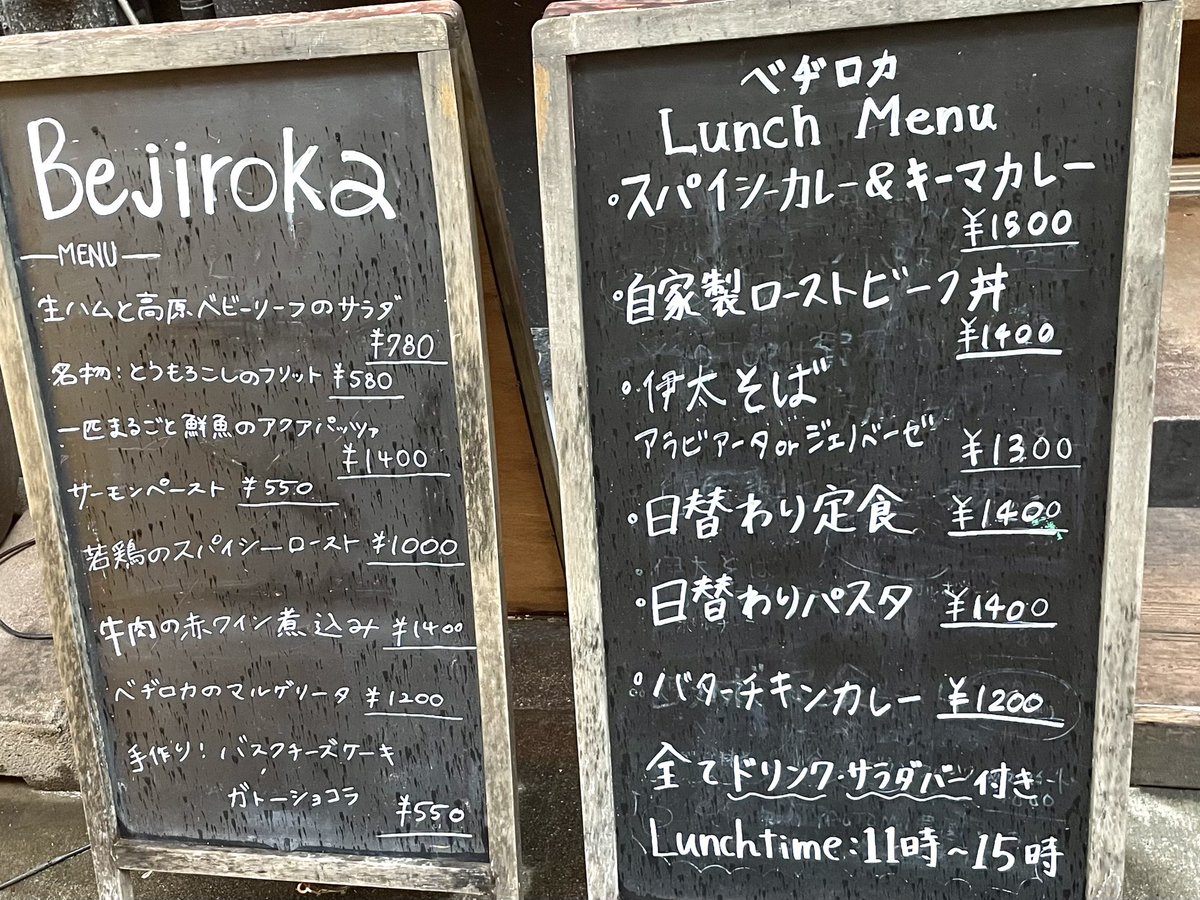 Bejiroka
MENU
生ハムと高原ベビーリーフのサラダ
¥780
名物:とうもろこしのフリット ¥580
一匹まるごと鮮魚のアクアパッツァ
¥1400
サーモンペースト ¥550
若鶏のスパイシーロースト ¥1000
牛肉の赤ワイン煮込み ¥1400
ベヂロカのマルゲリータ ¥1200
手作り! バスクチーズケーキ
ガトーショコラ
¥550
ベヂロカ
Lunch Menu
・スパイシーカレー&キーマカレー
¥1500
・自家製ローストビーフ丼
¥1400
・伊太そば
アラビアータorジェノベーゼ ¥1300
・日替わり定食 ¥1400
・日替わりパスタ ¥1400
・バターチキンカレー ¥1200
全てドリンク・サラダバー付き
Lunchtime:11時~15時